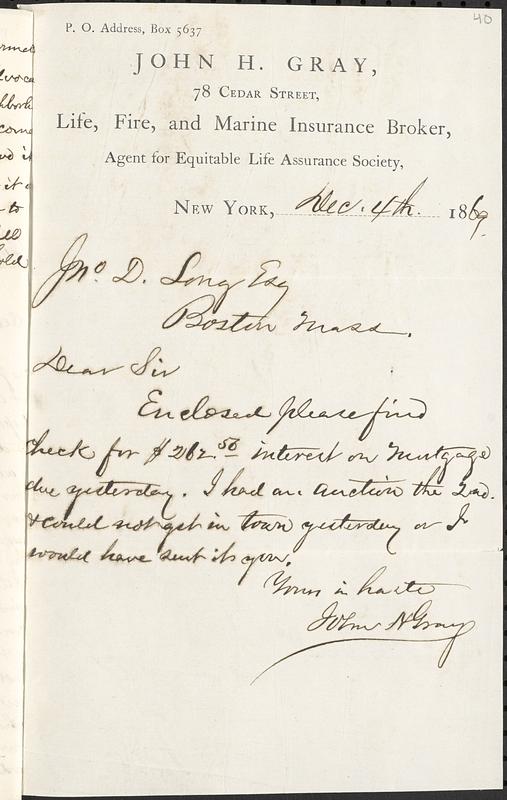 40
P. O. Address, Box 5637
JOHN H. GRAY,
78 Cedar Street,
Life, Fire, and Marine Insurance Broker,
Agent for Equitable Life Assurance Society,
New York, Dec. 4th. 1869.
Jno. D. Long Esq
Boston Mass.
Dear Sir
Enclosed please find
check for $262.50 interest on Mortgage
due yesterday. I had an auction the 2nd.
& could not get in town yesterday or I
would have sent it you.
Yours in haste
John H Gray